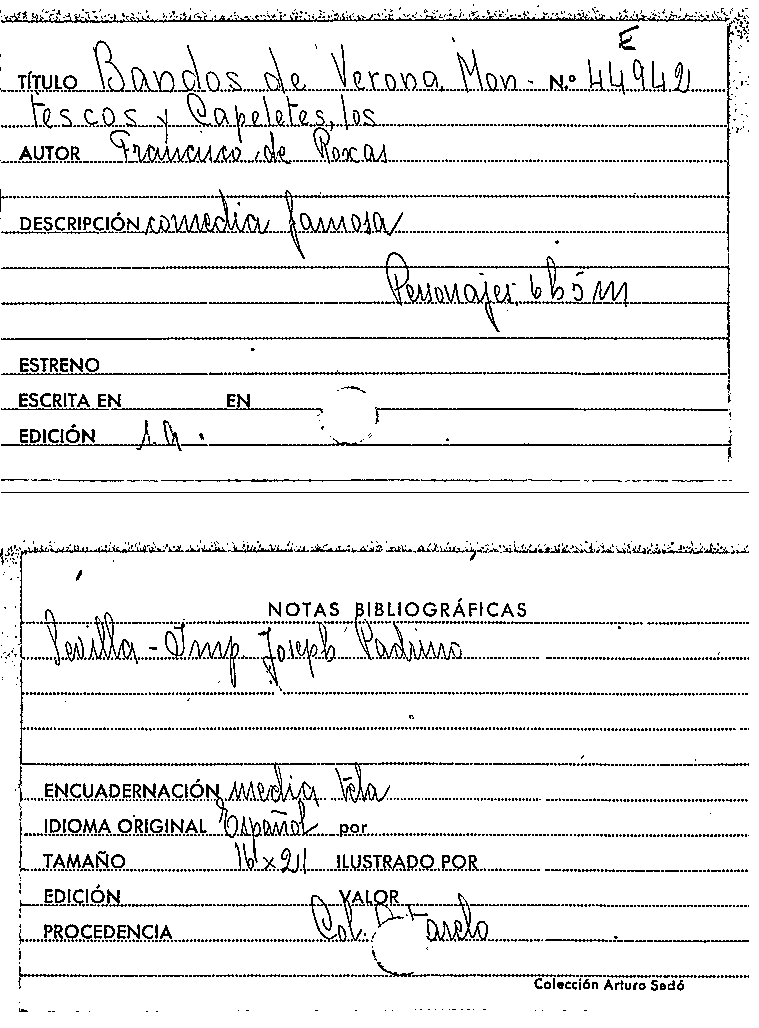 E
TÍTULO Bandos de Verona, Mon- N.º 44942
tescos y Capeletes, los
AUTOR Francisco de Roxas
DESCRIPCIÓN comedia famosa
Personajes, 6 h 5 m
ESTRENO
ESCRITA EN EN
EDICIÓN s.a.
NOTAS BIBLIOGRÁFICAS
Sevilla - Imp Joseph Padrino
ENCUADERNACIÓN media tela
IDIOMA ORIGINAL Español por
TAMAÑO 16 x 21 ILUSTRADO POR
EDICIÓN VALOR
PROCEDENCIA Col.
Colección Arturo Sedó